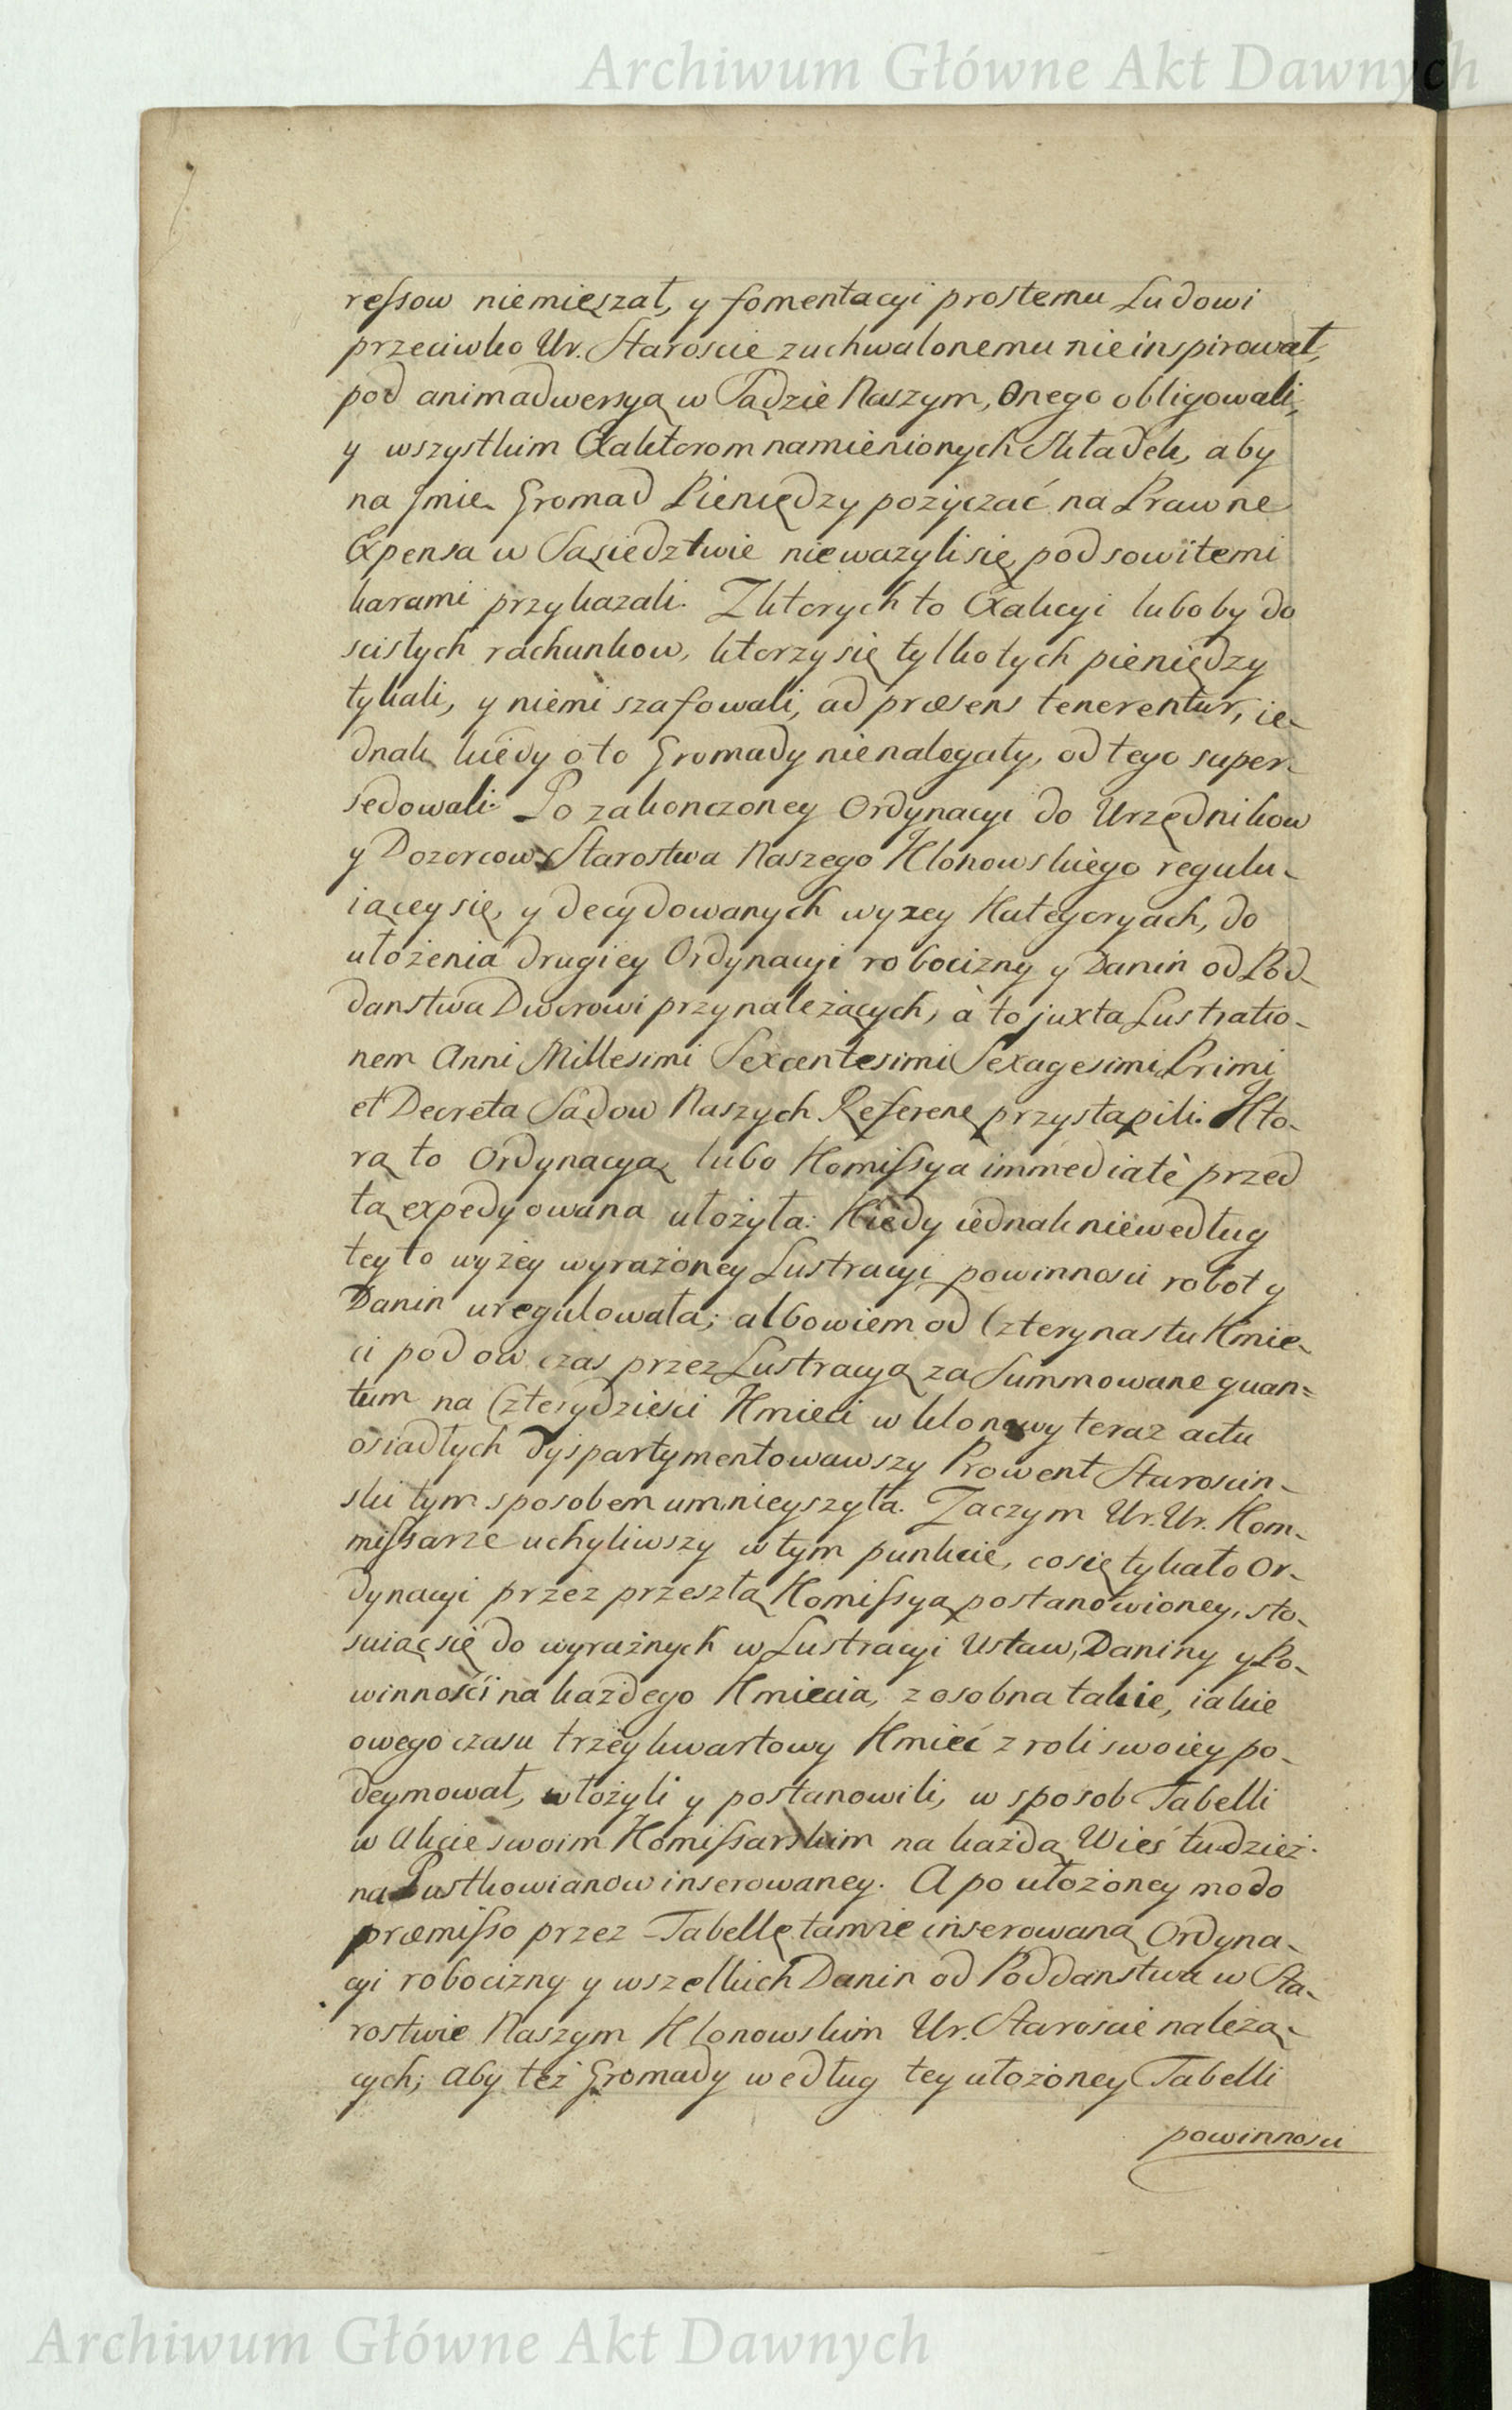 Archiwum Główne Akt Dawnych
ressow niemięszał, y fomentacyi prostemu Ludowi
przeciwko Ur. Staroscie zuchwalonemu nieinspirował,
pod animadwersyą w Sądzie Naszym, Onego obligowali,
y wszystkim Exaktorom namienionych Składek, aby
na Jmie Gromad Pieniędzy pożyczać na Prawne
Expensa w Sąsiedztwie nieważyli się, pod sowitemi
karami przykazali. Z ktorych to Exakcyi luboby do
scisłych rachunkow, ktorzy się tylko tych pieniędzy
tykali, y niemi szafowali, ad præsens tenerentur, ie-
dnak kiedy o to Gromady nienalegały, od tego super-
sedowali. Po zakonczoney Ordynacyi do Urzędnikow
y Dozorcow Starostwa Naszego Klonowskiego regulu-
iącey się, y decydowanych wyżey Kategoryach, do
ułożenia drugiey Ordynacyi robocizny y Danin od Pod-
danstwa Dworowi przynależących, à to juxta Lustratio-
nem Anni Millesimi Sexcentesimi Sexagesimi Primi
et Decreta Sądow Naszych Referen przystąpili. Kto-
rą to Ordynacyą lubo Komissya immediatè przed
tą expedyowana ułożyła: Kiedy iednak niewedług
tey to wyżey wyrażoney Lustracyi powinnosci robot y
Danin uregulowała; albowiem od Czterynastu Kmie-
ci pod ow czas przez Lustracyą za Summowane quan-
tum na Czterydzieści Kmieci w Klonowy teraz actu
osiadłych dyspartymentowawszy Prowent Staroscin-
ski tym sposobem umnieyszyła. Zaczym Ur. Ur. Kom-
missarze uchyliwszy w tym punkcie, co się tykało Or-
dynacyi przez przeszłą Komissyą postanowioney, sto-
suiąc się do wyraźnych w Lustracyi Ustaw, Daniny y Po-
winności na każdego Kmiecia, z osobna takie, iakie
owego czasu trzeykwartowy Kmieć z roli swoiey po-
deymował, włożyli y postanowili, w sposob Tabelli
w Akcie swoim Komissarskim na każdą Wieś tudzież
na Pustkowianow inserowaney. A po ułożoney modo
præmisso przez Tabellę tamże inserowaną Ordyna-
cyi robocizny y wszelkich Danin od Poddanstwa w Sta-
rostwie Naszym Klonowskim Ur. Staroscie należą-
cych; aby też Gromady według tey ułożoney Tabelli
powinnosci
Archiwum Główne Akt Dawnych